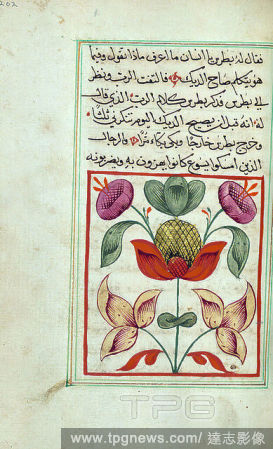 202
فقال له بطرس يا انسان ما اعرف ماذا تقول وفيما
هو يتكلم صاح الديك فالتفت الرب ونظر
الى بطرس فذكر بطرس كلام الرب الذي قال
له انه قبل ان يصيح الديك اليوم تنكرني ثلثا
وخرج بطرس خارجا وبكى بكاء مرا والرجال
الذين امسكوا يسوع كانوا يهزون به ويضربونه
TPG
www.tpgnews.com/ 達志影像